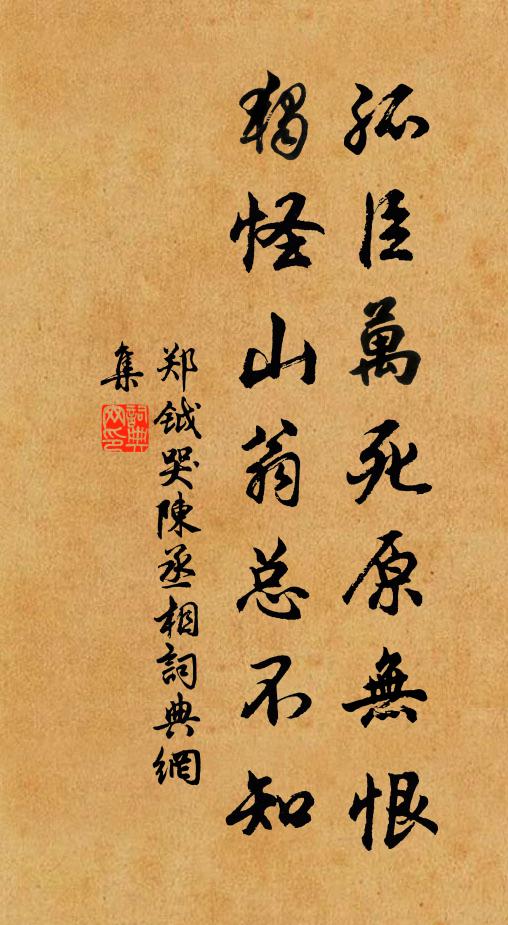 孤臣萬死原無恨
獨怪山翁总不知
郑钺哭陳丞相詞典網
集
詞典
网印